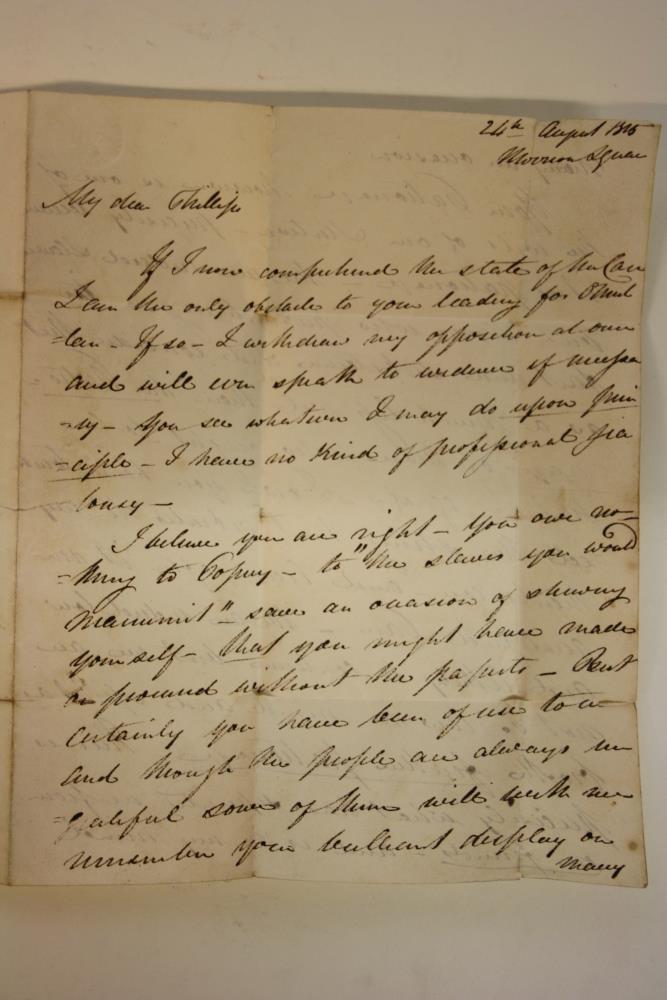 24th August 1815
Merrion Square
My dear Phillips
If I now comprehend the state of the Case
I am the only obstacle to your leading for
-lan - If so - I withdraw my opposition at once
and will even speak to evidence if necessa
-ry - You see whatever I may do upon prin
=ciple - I have no kind of professional jea
lousy -
I believe you are right - You owe no-
=thing to Popery - to "the slaves you would
manumit" - save an occasion of shewing
yourself - that you might have made
or procured without the papists - But
certainly you have been of use to us
and though the people are always un
=grateful some of them will with me
remember your brilliant display on
many